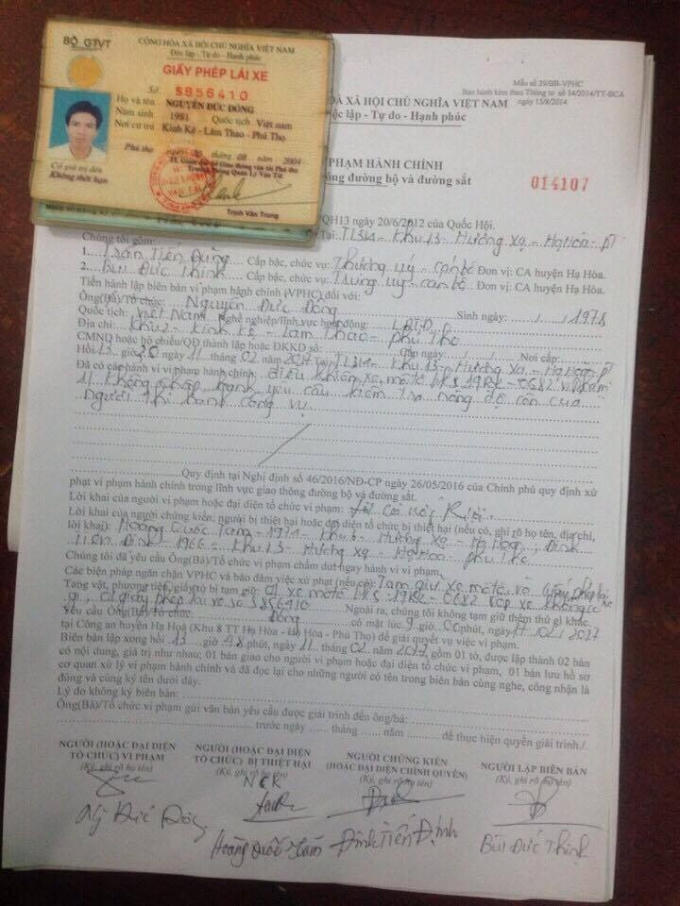 BỘ GTVT
CỘNG HÒA XÃ HỘI CHỦ NGHĨA VIỆT NAM
Độc lập - Tự do - Hạnh phúc
GIẤY PHÉP LÁI XE
Số S856410
Họ và tên NGUYỄN ĐỨC ĐÔNG
Năm sinh 1981 Quốc tịch Việt nam
Nơi cư trú Kinh Kệ - Lâm Thao - Phú Thọ
Phú thọ 08 năm 2004
Có giá trị đến
Không thời hạn
Trịnh Văn Trung
Mẫu số 39/BB-VPHC
Ban hành kèm theo Thông tư số 34/2014/TT-BCA
ngày 15/8/2014
HÒA XÃ HỘI CHỦ NGHĨA VIỆT NAM
lập - Tự do - Hạnh phúc
PHẠM HÀNH CHÍNH
đường bộ và đường sắt
014107
QH13 ngày 20/6/2012 của Quốc Hội.
Tại: TL314 - Khu 13 - Hương xạ - Hạ Hòa - PT
Chúng tôi gồm:
1. Trần Tiến Dũng Cấp bậc, chức vụ: Thượng uý - cán bộ Đơn vị: CA huyện Hạ Hòa.
2. Bùi Đức Thịnh Cấp bậc, chức vụ: Trung uý - cán bộ Đơn vị: CA huyện Hạ Hòa.
Tiến hành lập biên bản vi phạm hành chính (VPHC) đối với:
Ông(Bà)/Tổ chức: Nguyễn Đức Đông Sinh ngày: / / 1978
Quốc tịch: Việt Nam Nghề nghiệp/lĩnh vực hoạt động: LĐTD
Địa chỉ: Khu 2 - Kinh kệ - Lâm Thao - Phú Thọ
CMND hoặc hộ chiếu/QĐ thành lập hoặc ĐKKD số: Cấp ngày / / Nơi cấp:
Hồi 13 giờ 20 ngày 11 tháng 02 năm 2017 Tại TL314 - Khu 13 - Hương xạ - Hạ Hòa - PT
Đã có các hành vi vi phạm hành chính: điều khiển xe mô tô BKS 19RC - 0682 vi phạm
1) Không chấp hành yêu cầu kiểm tra nồng độ cồn của
người thi hành công vụ
Quy định tại Nghị định số 46/2016/NĐ-CP ngày 26/05/2016 của Chính phủ quy định xử
phạt vi phạm hành chính trong lĩnh vực giao thông đường bộ và đường sắt.
Lời khai của người vi phạm hoặc đại diện tổ chức vi phạm: có uống Rượu
Lời khai của người chứng kiến, người bị thiệt hại hoặc đại diện tổ chức bị thiệt hại (nếu có, ghi rõ họ tên, địa chỉ,
lời khai): Hoàng Quốc - 1974 - Khu - Hương xạ - Hạ Hòa, Đinh
Tiến Đính - 1966 - Khu 13 - Hương xạ - Hạ Hòa - phú Thọ
Chúng tôi đã yêu cầu Ông(Bà)/Tổ chức vi phạm chấm dứt ngay hành vi vi phạm.
Các biện pháp ngăn chặn VPHC và bảo đảm việc xử phạt (nếu có): Tạm giữ xe mô tô và Giấy phép lái
Tang vật, phương tiện, giấy tờ bị tạm giữ gồm: 01 xe mô tô BKS: 19RC - 0682
giấy phép lái xe số S856410 Ngoài ra, chúng tôi không tạm giữ thêm thứ gì khác.
Yêu cầu Ông(Bà)/Tổ chức: Đông có mặt lúc 9 giờ 00 phút, ngày 17/02/2017
tại Công an huyện Hạ Hoà (Khu 8 TT Hạ Hòa - Hạ Hòa - Phú Thọ) để giải quyết vụ việc vi phạm.
Biên bản lập xong hồi 13 giờ 48 phút, ngày 11 tháng 02 năm 2017, gồm 01 tờ, được lập thành 02 bản
có nội dung, giá trị như nhau; 01 bản giao cho người vi phạm hoặc đại diện tổ chức vi phạm, 01 bản lưu hồ sơ
cơ quan xử lý vi phạm hành chính và đã đọc lại cho những người có tên trong biên bản cùng nghe, công nhận là
đúng và cùng ký tên dưới đây.
Lý do không ký biên bản:
Ông(Bà)/Tổ chức vi phạm gửi văn bản yêu cầu được giải trình đến ông/bà:
trước ngày tháng năm để thực hiện quyền giải trình./.
NGƯỜI (HOẶC ĐẠI DIỆN TỔ CHỨC) VI PHẠM
(Ký, ghi rõ họ tên)
Đức Đông
NGƯỜI (HOẶC ĐẠI DIỆN TỔ CHỨC) BỊ THIỆT HẠI
(Ký, ghi rõ họ tên)
NCK
Hoàng Quốc
NGƯỜI CHỨNG KIẾN
(HOẶC ĐẠI DIỆN CHÍNH QUYỀN)
(Ký, ghi rõ họ tên)
Đinh Tiến Đính
NGƯỜI LẬP BIÊN BẢN
(Ký, ghi rõ họ tên)
Bùi Đức Thịnh